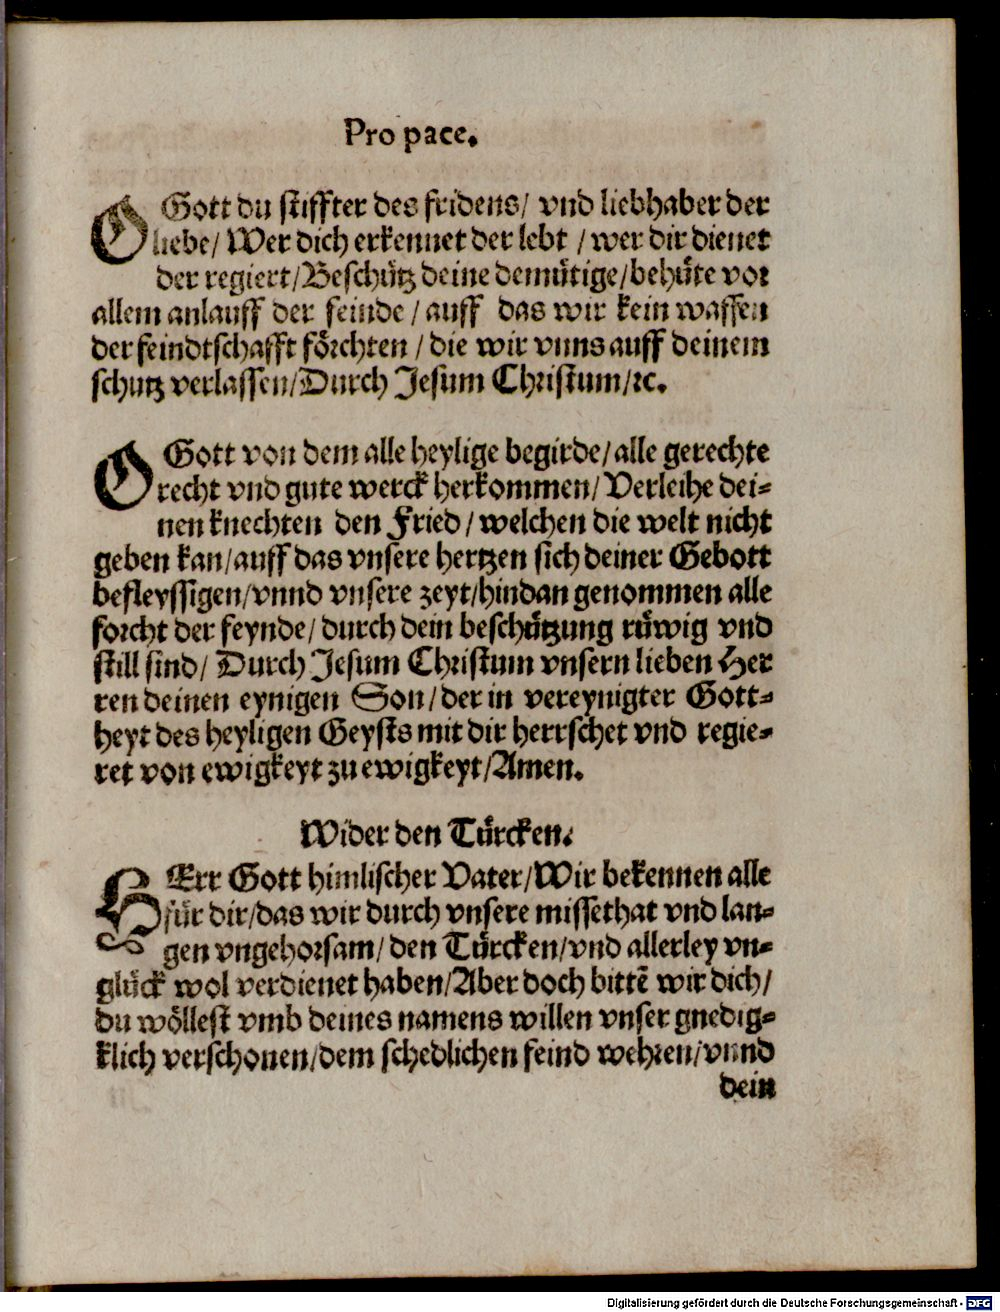 Pro pace.
OGott du stiffter des fridens/ vnd liebhaber der
liebe/ Wer dich erkennet der lebt / wer dir dienet
der regiert/Beschütz deine demütige/behüte vor
allem anlauff der feinde / auff das wir kein waffen
der feindtschafft förchten / die wir vnns auff deinem
schutz verlassen/Durch Jesum Christum/ꝛc.
OGott von dem alle heylige begirde/alle gerechte
recht vnd gute werck herkommen/Verleihe dei⸗
nen knechten den Fried / welchen die welt nicht
geben kan/auff das vnsere hertzen sich deiner Gebott
befleyssigen/vnnd vnsere zeyt/hindan genommen alle
forcht der feynde/ durch dein beschützung rüwig vnd
still sind/ Durch Jesum Christum vnsern lieben Her
ren deinen eynigen Son/der in vereynigter Gott⸗
heyt des heyligen Geysts mit dir herrschet vnd regie⸗
ret von ewigkeyt zu ewigkeyt/Amen.
Wider den Türcken.
HErr Gott himlischer Vater/Wir bekennen alle
für dir/das wir durch vnsere missethat vnd lan⸗
gen vngehorsam/den Türcken/vnd allerley vn⸗
glück wol verdienet haben/Aber doch bittē wir dich/
du wöllest vmb deines namens willen vnser gnedig⸗
klich verschonen/dem schedlichen feind wehren/vnnd
dein
Digitalisierung gefördert durch die Deutsche Forschungsgemeinschaft - DFG